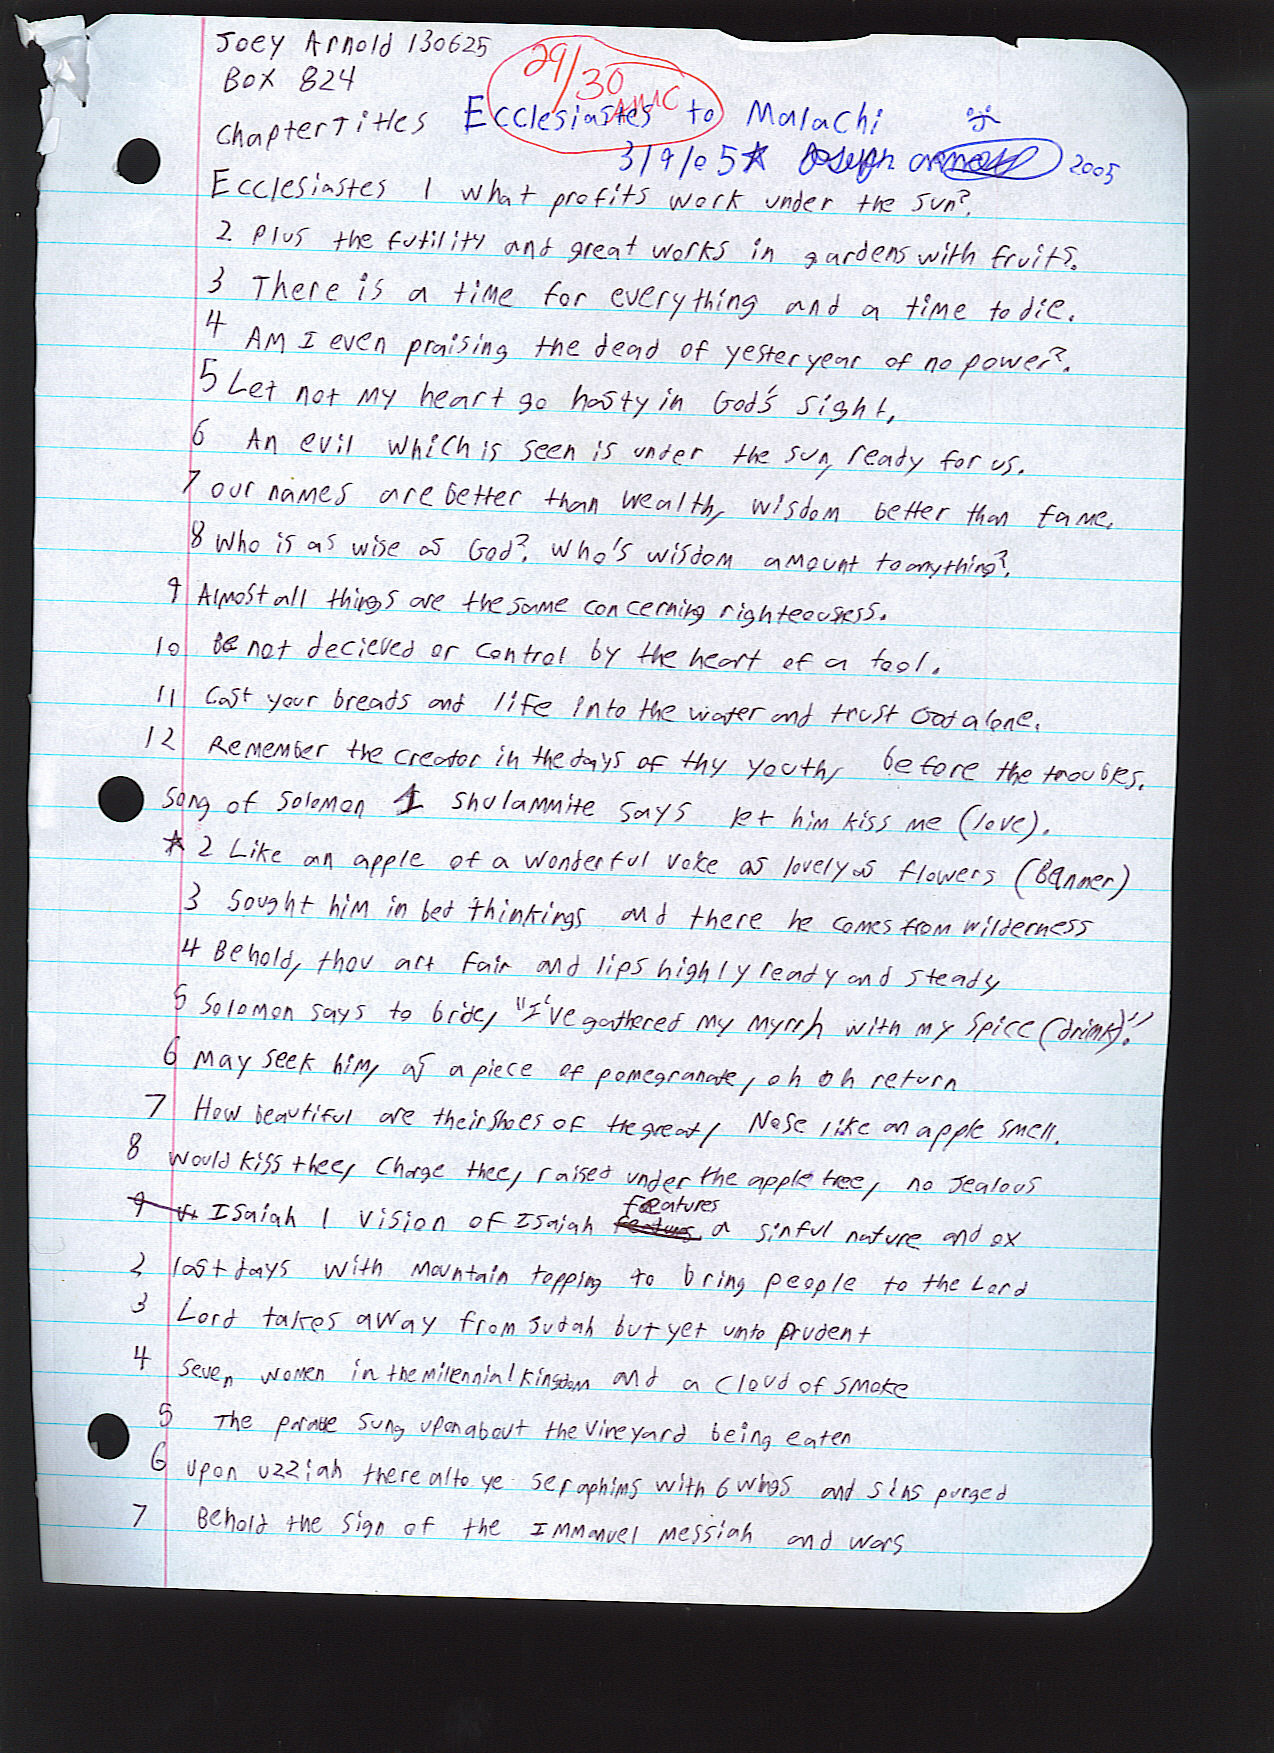 Joey Arnold 130625
Box 824
29/30
AMC
Chapter Titles Ecclesiastes to Malachi
3/9/05 Joseph Arnold 2005
Ecclesiastes 1 What profits work under the sun?.
2 Plus the futility and great works in gardens with fruits.
3 There is a time for everything and a time to die.
4 Am I even praising the dead of yesteryear of no power?.
5 Let not my heart go hasty in God's sight.
6 An evil which is seen is under the sun, ready for us.
7 our names are better than wealth, wisdom better than fame.
8 Who is as wise as God?. Who's wisdom amount to anything?.
9 Almost all things are the same concerning righteousess.
10 Be not decieved or control by the heart of a fool.
11 Cast your breads and life into the water and trust God alone.
12 Remember the creator in the days of thy youth, before the troubles.
Song of Solomon 1 Shulammite says let him kiss me (love).
* 2 Like an apple of a wonderful voice as lovely as flowers (Banner)
3 Sought him in bed thinkings and there he comes from wilderness
4 Behold, thou art fair and lips highly ready and steady
5 Solomon says to bride, "I've gathered my myrrh with my spice (drink)".
6 May seek him, as a piece of pomegranate, oh oh return
7 How beautiful are their shoes of the great, Nose like an apple smell.
8 Would kiss thee, charge thee, raised under the apple tree, no jealous
features
9 Isaiah 1 Vision of Isaiah a sinful nature and ox
2 last days with mountain topping to bring people to the Lord
3 Lord takes away from Judah but yet unto prudent
4 Seven women in the milennial kingdom and a cloud of smoke
5 The sung upon about the vineyard being eaten
6 Upon Uzziah there ye seraphims with 6 wings and sins purged
7 Behold the sign of the Immanuel Messiah and wars